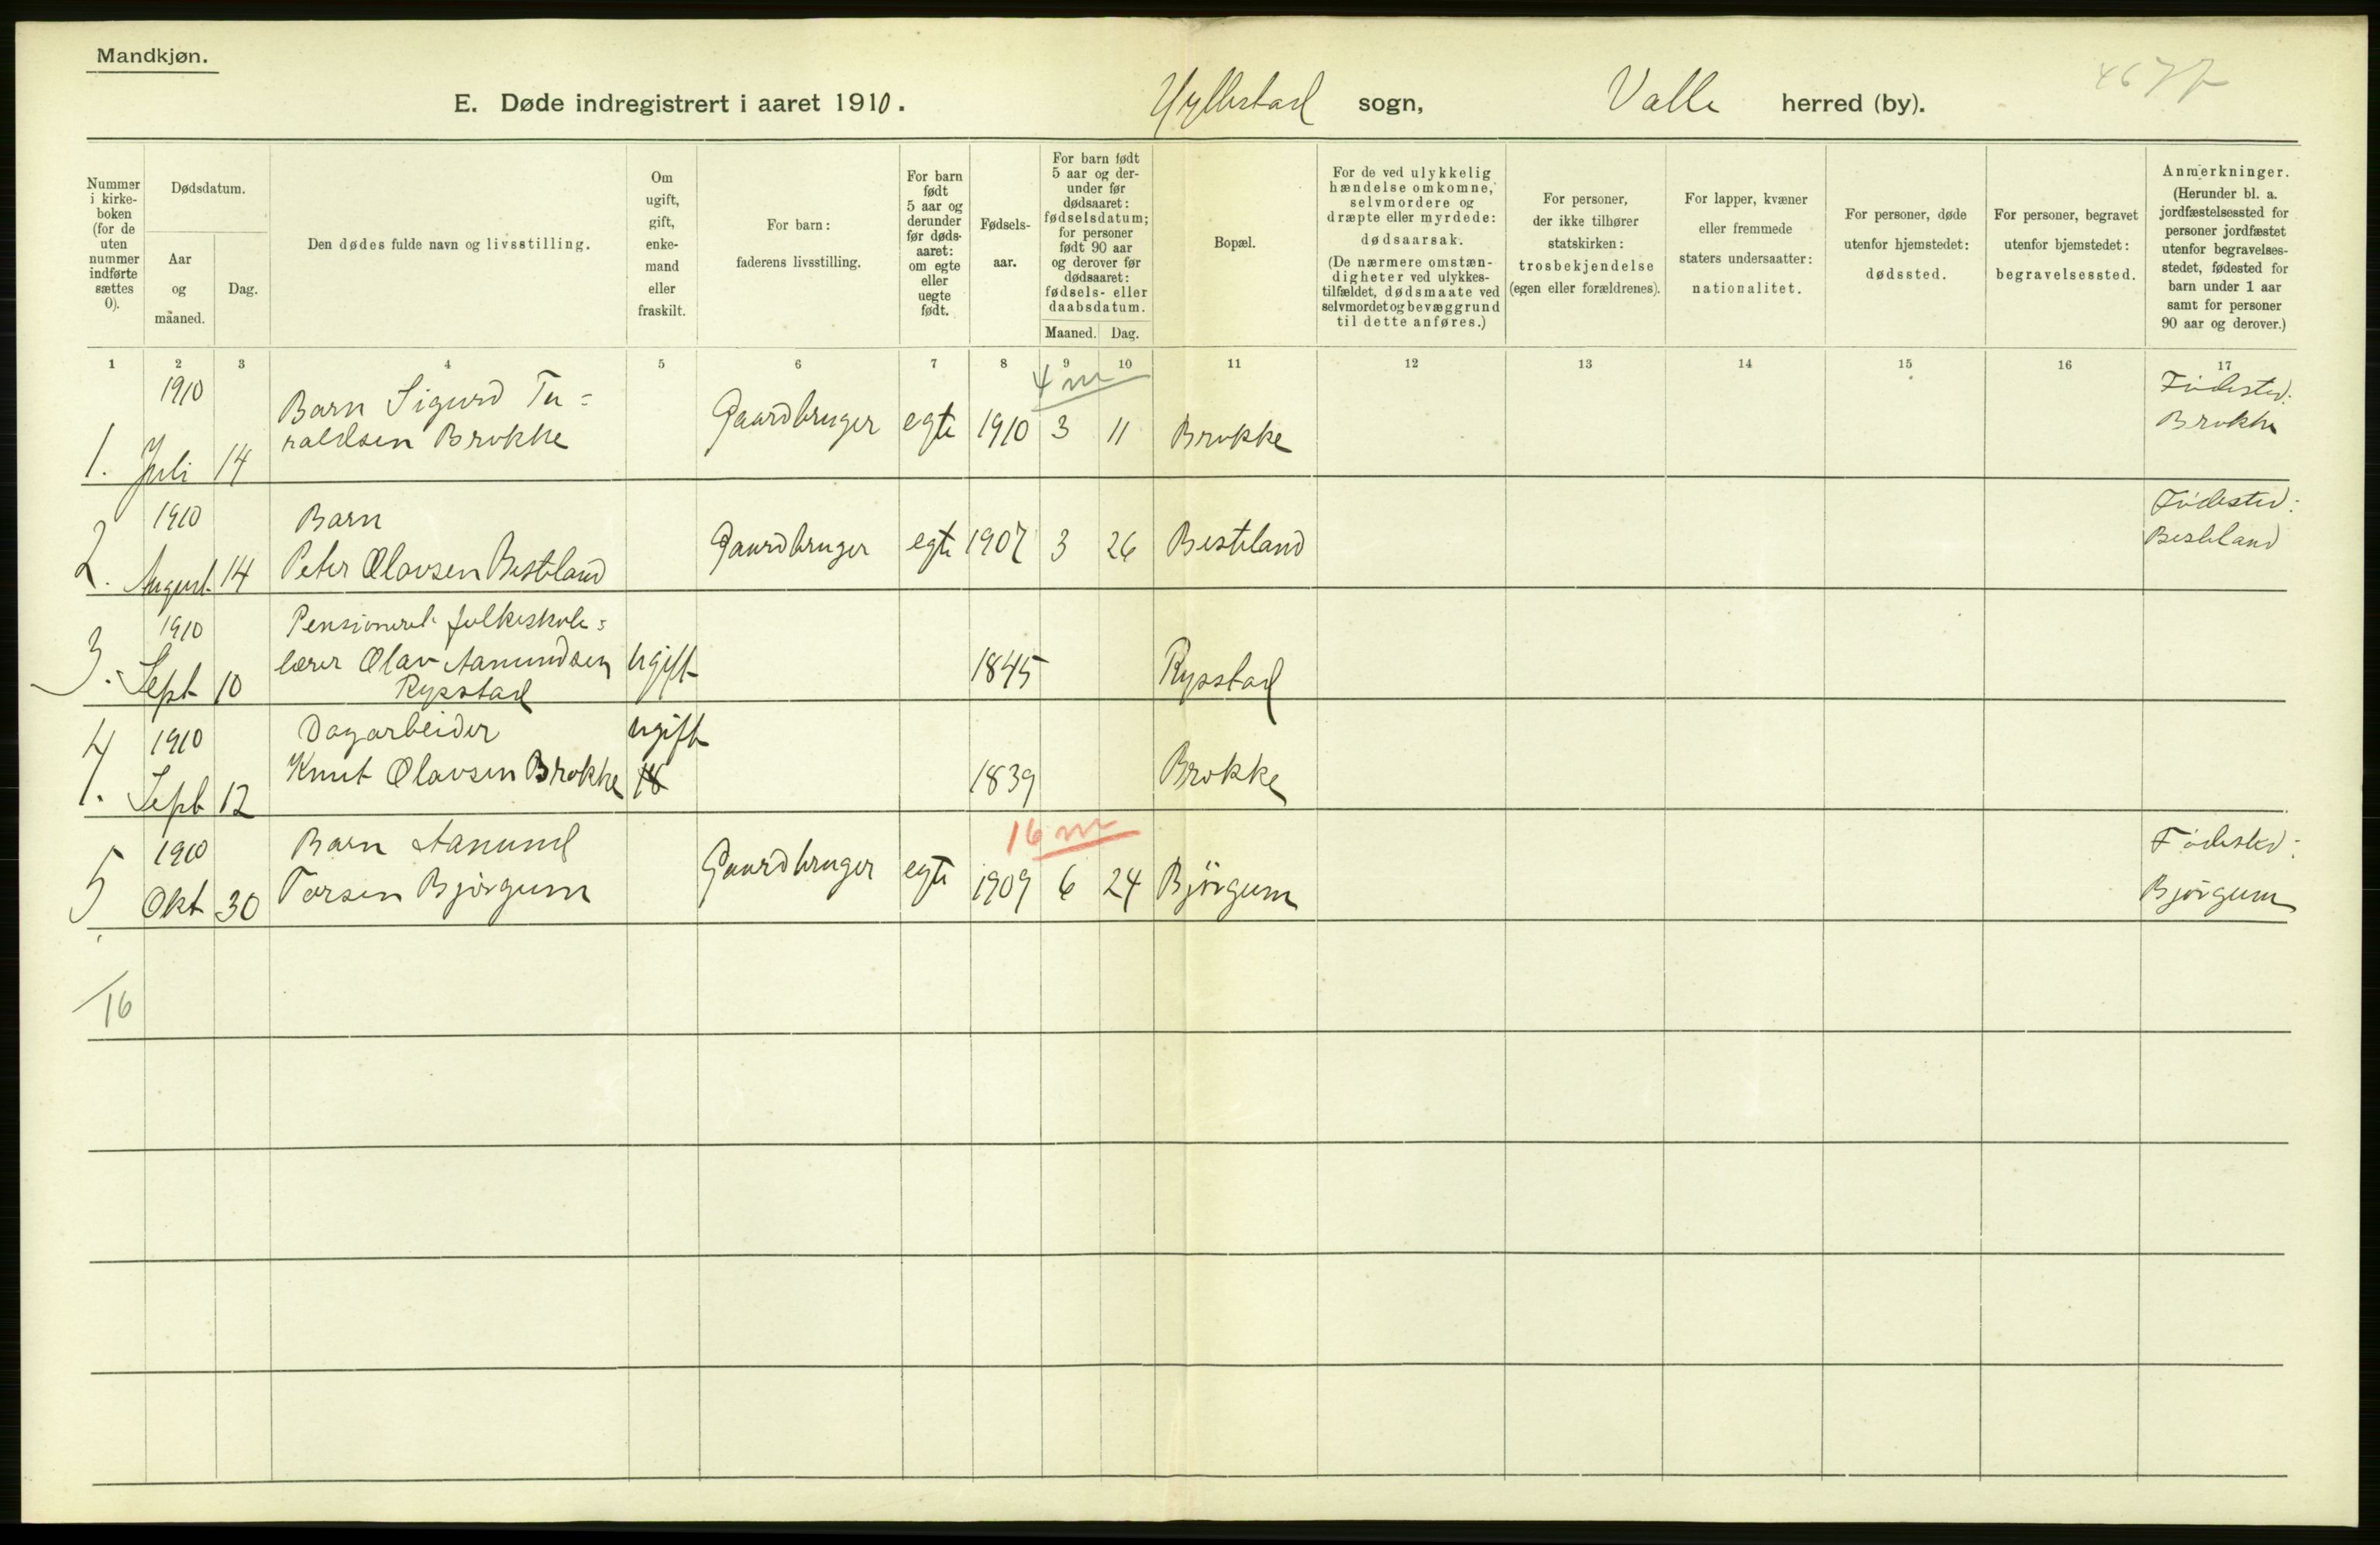 Mandkjøn.
E. Døde indregistrert i aaret 1910. Hyllestad sogn, Valle herred (by).
Nummer i kirke-boken (for de uten nummer indførte sættes 0).
Dødsdatum.
Aar og måaned.
Dag.
Den dødes fulde navn og livsstilling.
Om ugift, gift, enke-mand eller fraskilt.
For barn: faderens livsstilling.
For barn født 5 aar og derunder før døds-aaret: om egte eller uegte født.
Fødsels-aar.
For barn født 5 aar og der-under før dødsaaret: fødselsdatum; for personer født 90 aar og derover før dødsaaret: fødsels- eller daabsdatum.
Maaned. Dag.
Bopæl.
For de ved ulykkelig hændelse omkomne, selvmordere og dræpte eller myrdede: dødsaarsak. (De nærmere omstæn-digheter ved ulykkes-tilfældet, dødsmaate ved selvmordet og bevæggrund til dette anføres.)
For personer, der ikke tilhører statskirken: trosbekjendelse (egen eller forældrenes).
For lapper, kvæner eller fremmede staters undersaatter: nationalitet.
For personer, døde utenfor hjemstedet: dødssted.
For personer, begravet utenfor bjemstedet: begravelsessted.
Anmerkninger. (Herunder bl. a. jordfæstelsessted for personer jordfæstet utenfor begravelses-stedet, fødested for barn under 1 aar samt for personer 90 aar og derover.)
1 2 3 4 5 6 7 8 9 10 11 12 13 14 15 16 17
4 m
1910 Barn Sigurd Ta=
1. Juli 14 raldsen Brokke Gaardbruger egte 1910 3 11 Brokke Födested: Brokke
1910 Barn
2. August 14 Peter Olavsen Besteland Gaardbruger egte 1907 3 26 Besteland Födested: Besteland
1910 Pensioneret folkeskole=
3. Sept 10 lærer Olav Aanundsen Rysstad ugift 1845 Rysstad
1910 Dagarbeider ugift
4. Sept 12 Knut Olavsen Brokke 1839 Brokke
16 m
1910 Barn Aanund
5. Okt 30 Torsen Bjørgum Gaardbruger egte 1909 6 24 Björgum Födested: Björgum
16